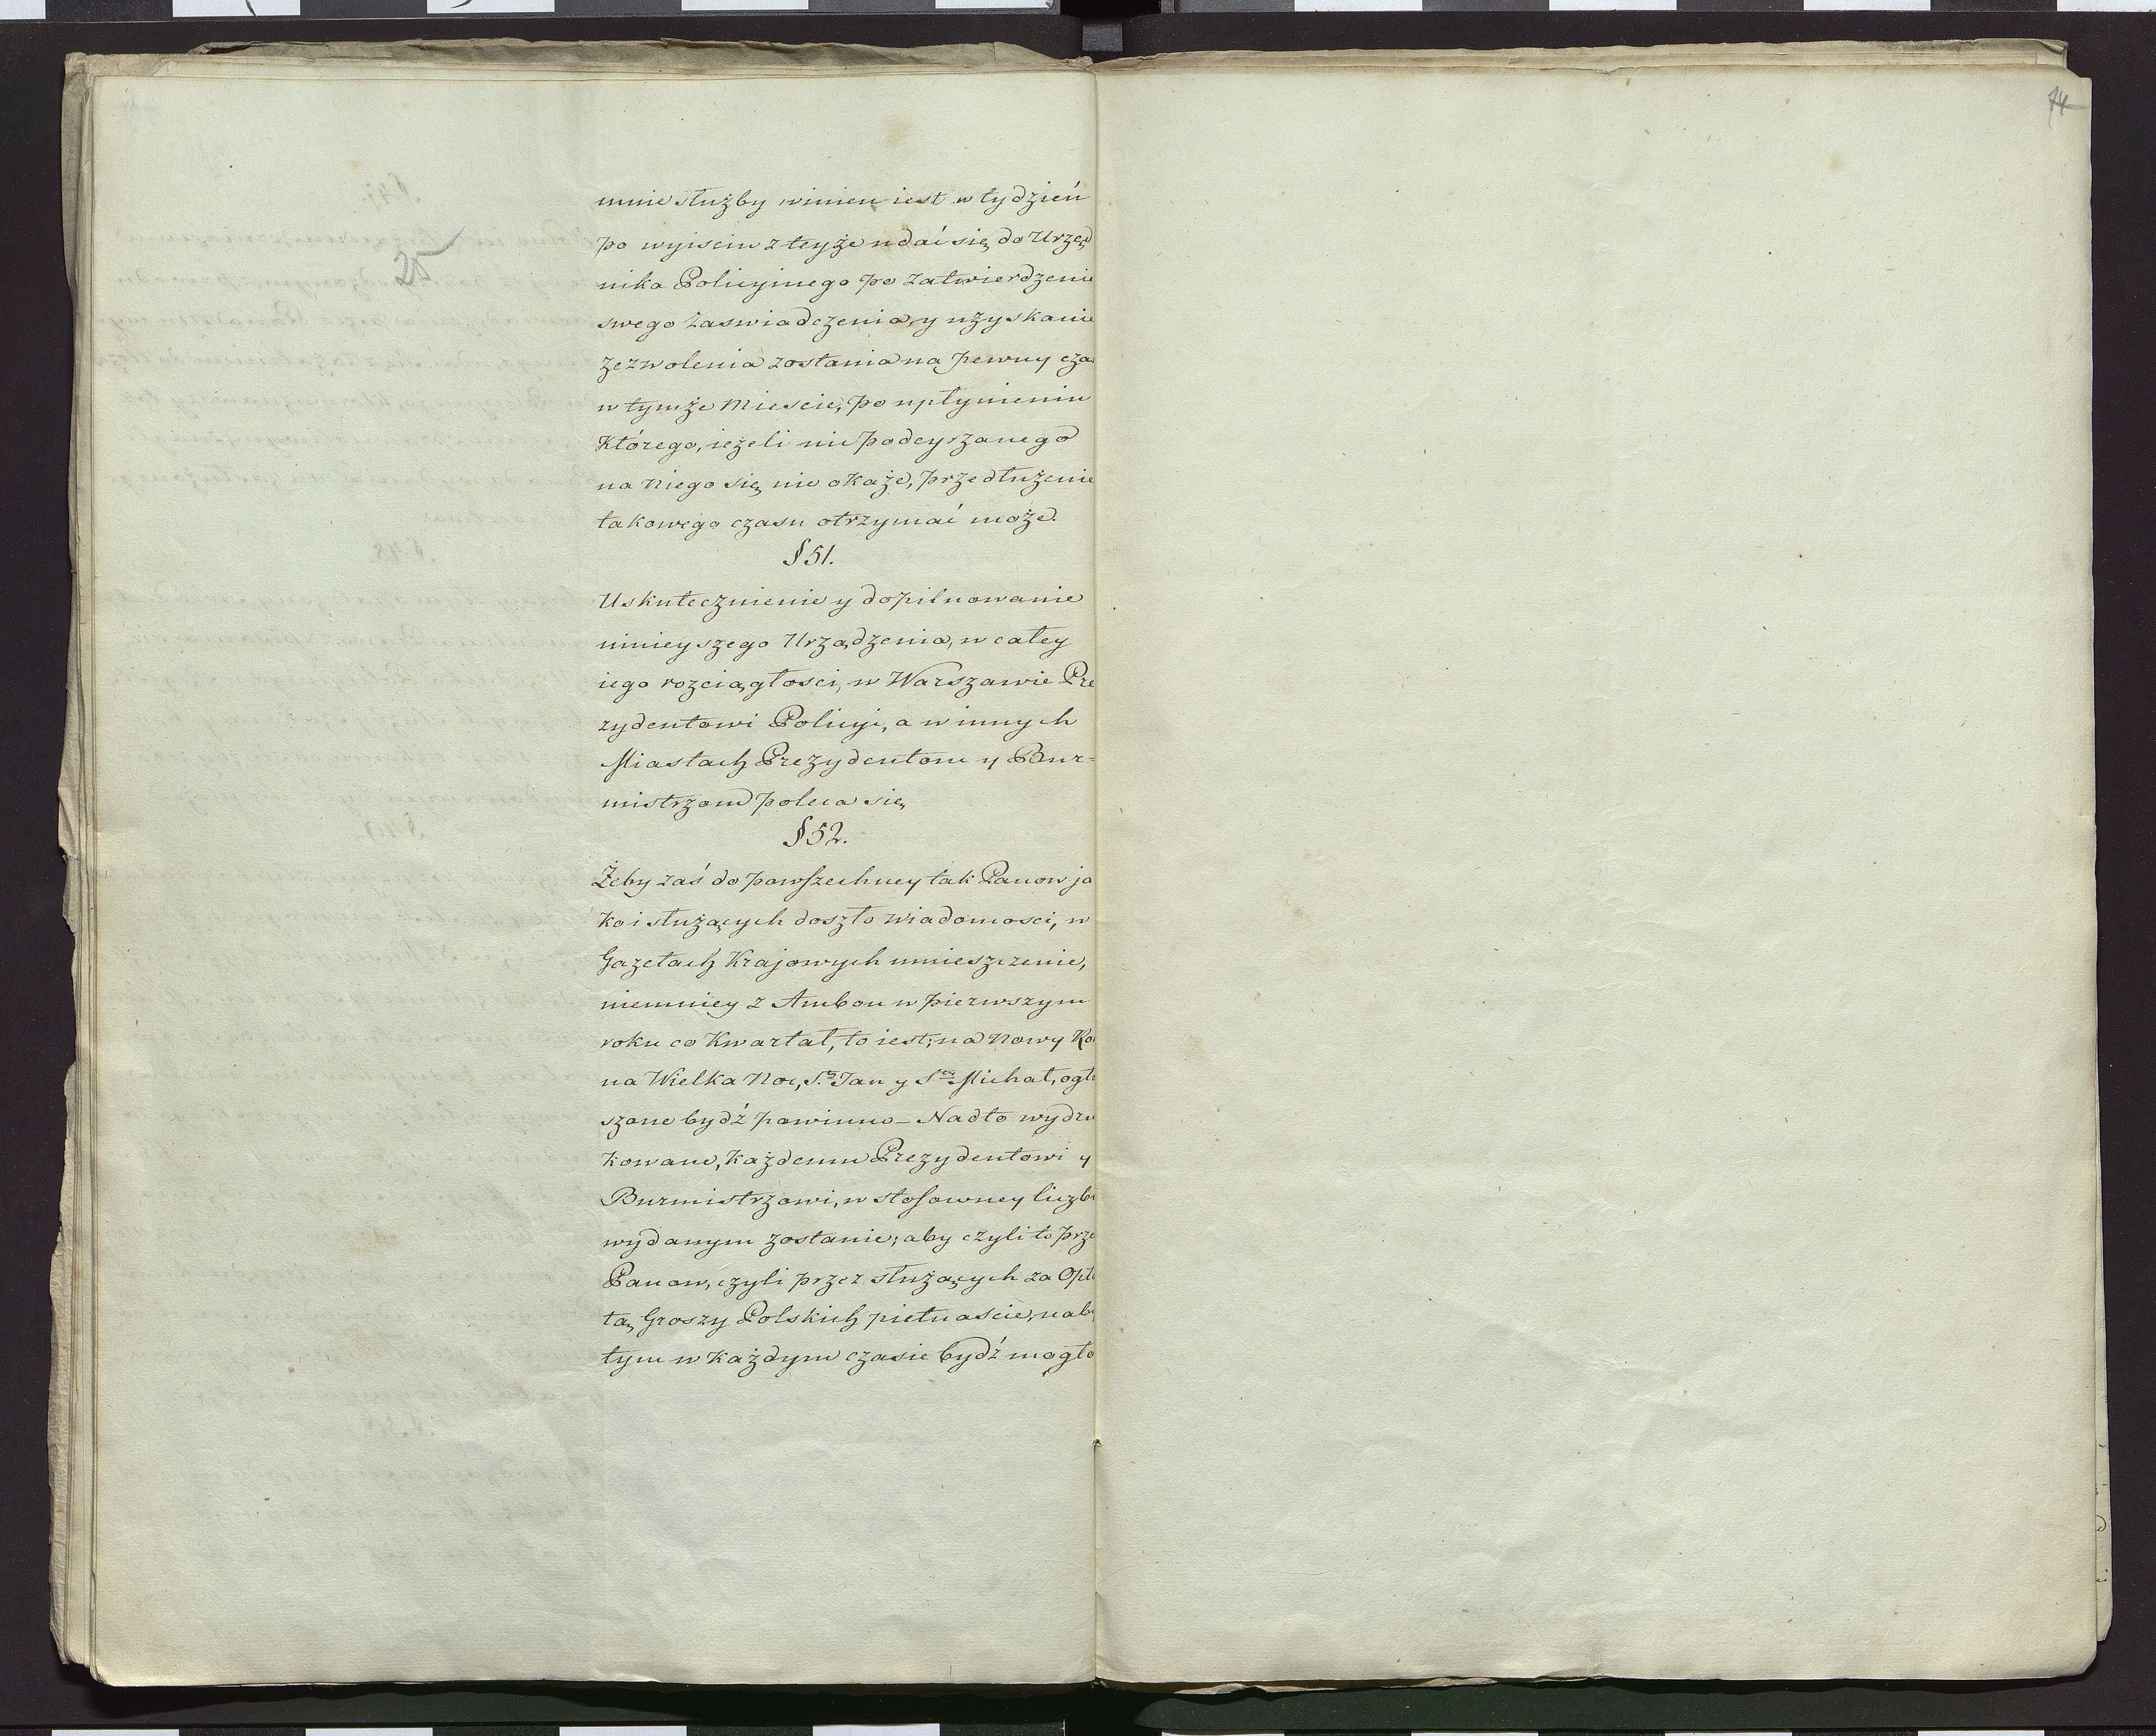 74
25
mnie służby winien iest w tydzień
po wyiściu z teyże udać się do Urzęd
nika Policyinego po zatwierdzenie
swego zaswiadczenia, y uzyskanie
zezwolenia zostania na pewny czas
w tymże Miescie, po upłynieniu
którego, ieżeli nic podeyszanego
na niego się nie okaże, przedłużenie
takowego czasu otrzymać może.
§ 51.
Uskutecznienie y dopilnowanie
ninieyszego Urządzenia, w całey
iego rozciągłosci, w Warszawie Pre
zydentowi Policyi, a w innych
Miastach Prezydentom y Bur=
mistrzom poleca się
§ 52.
Żeby zaś do powszechney tak Panow ja
ko i służących doszło wiadomosci, w
Gazetach Krajowych umieszczenie,
niemniey z Ambon w pierwszym
roku co Kwartał, to iest; na Nowy Ro
na Wielka Noc, S.ty Jan y Sty Michał, ogło
szone bydź powinno – Nadto wydru
kowane, każdemu Prezydentowi y
Burmistrzowi, w stosowney liczbie
wydanym zostanie; aby czyli to prze
Panow, czyli przez służących za Opła
tą Groszy Polskich pietnascie, naby
tym w każdym czasie bydź mogło